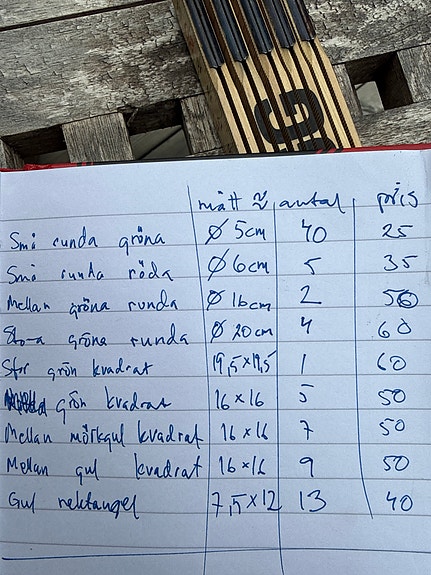 mått ≈ antal pris
Små runda gröna Ø 5cm 40 25
Små runda röda Ø 6cm 5 35
Mellan gröna runda Ø 16cm 2 50
Stora gröna runda Ø 20cm 4 60
Stor grön kvadrat 19,5x19,5 1 60
grön kvadrat 16x16 5 50
Mellan mörkgul kvadrat 16x16 7 50
Mellan gul kvadrat 16x16 9 50
Gul rektangel 7,5x12 13 40